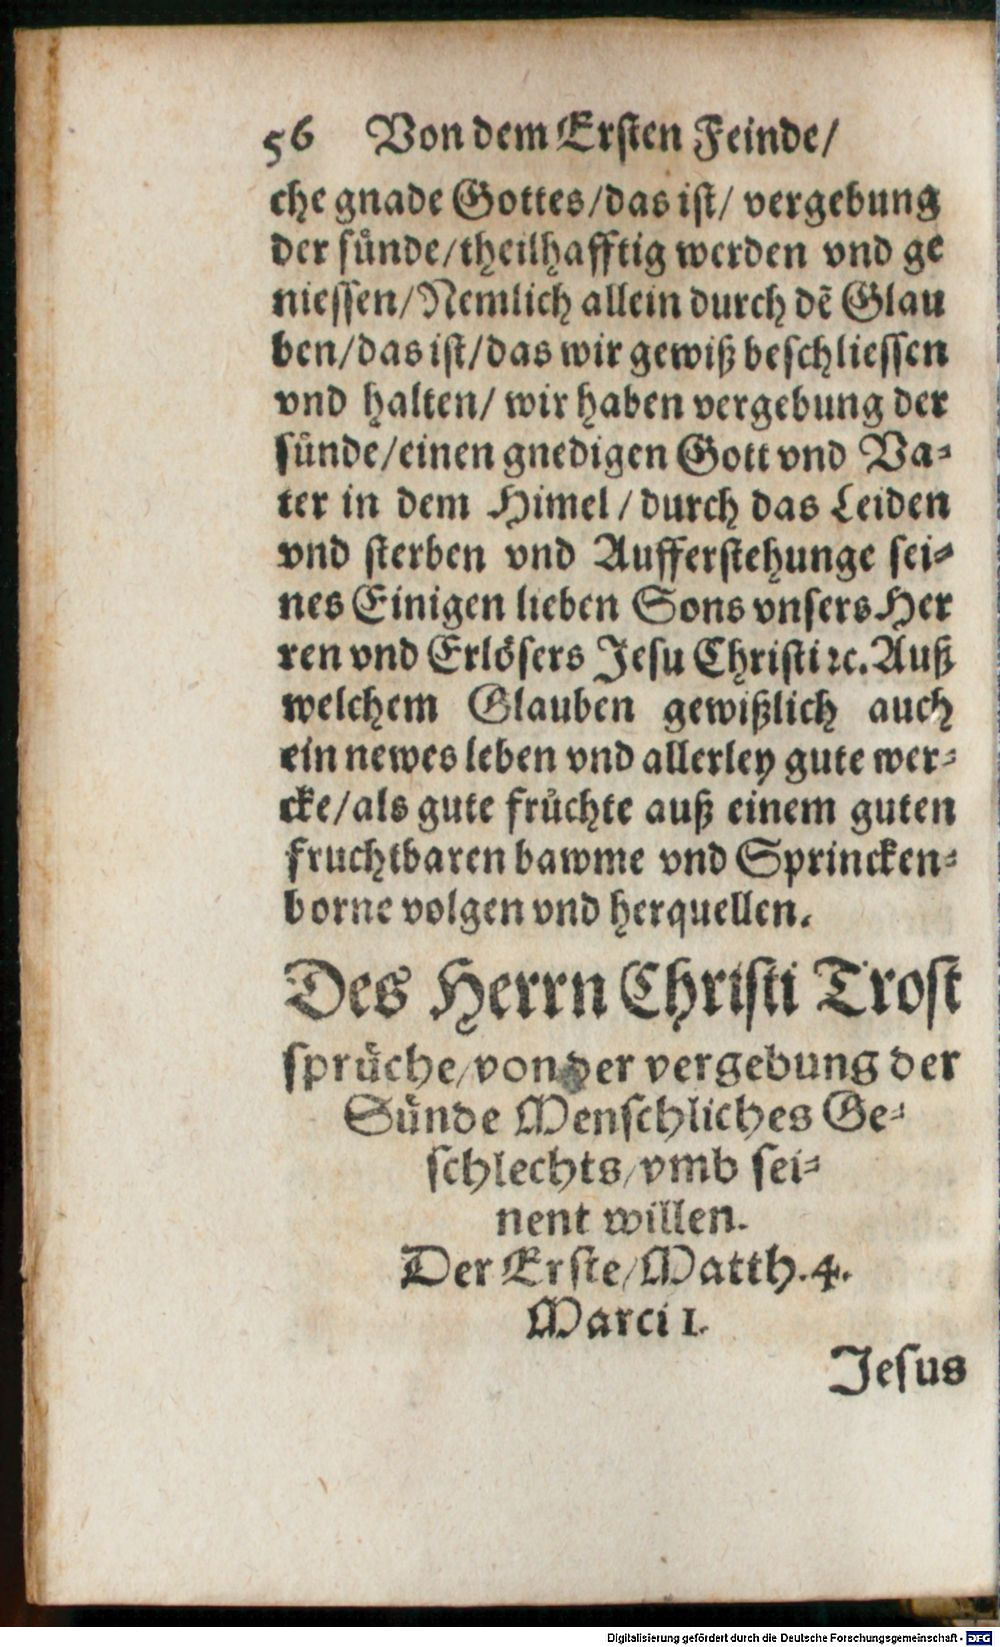 56 Von dem Ersten Feinde/
che gnade Gottes/das ist/ vergebung
der sünde/theilhafftig werden vnd ge
niessen/Nemlich allein durch dẽ Glau
ben/das ist/das wir gewiß beschliessen
vnd halten/ wir haben vergebung der
sünde/einen gnedigen Gott vnd Va-
ter in dem Himel/durch das Leiden
vnd sterben vnd Aufferstehunge sei-
nes Einigen lieben Sons vnsers Her
ren vnd Erlösers Jesu Christi ꝛc. Auß
welchem Glauben gewißlich auch
ein newes leben vnd allerley gute wer-
cke/als gute früchte auß einem guten
fruchtbaren bawme vnd Sprincken-
borne volgen vnd herquellen.
Des Herrn Christi Trost
sprüche/von der vergebung der
Sünde Menschliches Ge-
schlechts/vmb sei-
nent willen.
Der Erste/Matth.4.
Marci 1.
Jesus
Digitalisierung gefördert durch die Deutsche Forschungsgemeinschaft - DFG